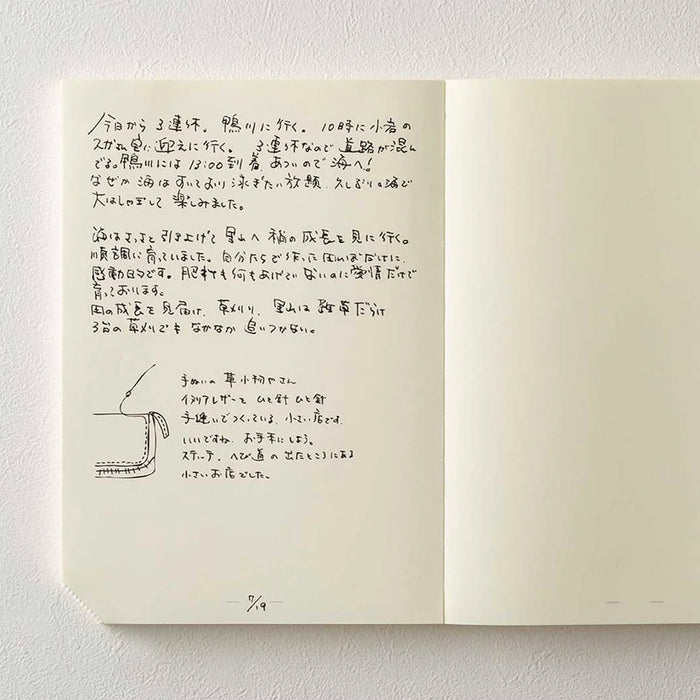 今日から3連休。鴨川に行く。10時に小岩の
スガね宅に迎えに行く。3連休なので道路が混ん
でる。鴨川には13:00到着、あついので海へ!
なぜか海はすいており泳ぎたい放題、久しぶりの海で
大はしゃぎして楽しみました。
海はさっさと引き上げて里山へ稲の成長を見に行く。
順調に育っていました。自分たちで作った田んぼだけに、
感動的です。肥料も何もあげていないのに愛情だけで
育っております。
田の成長を見届け、草刈り、里山は雑草だらけ
3台の草刈りでもなかなか追いつかない。
手ぬいの革小物やさん
イタリアレザーを ひと針 ひと針
手縫いでつくっている、小さい店です。
いいですね、お手本にしよう。
ステッチ、へび道の出たところにある
小さいお店でした。
7/19